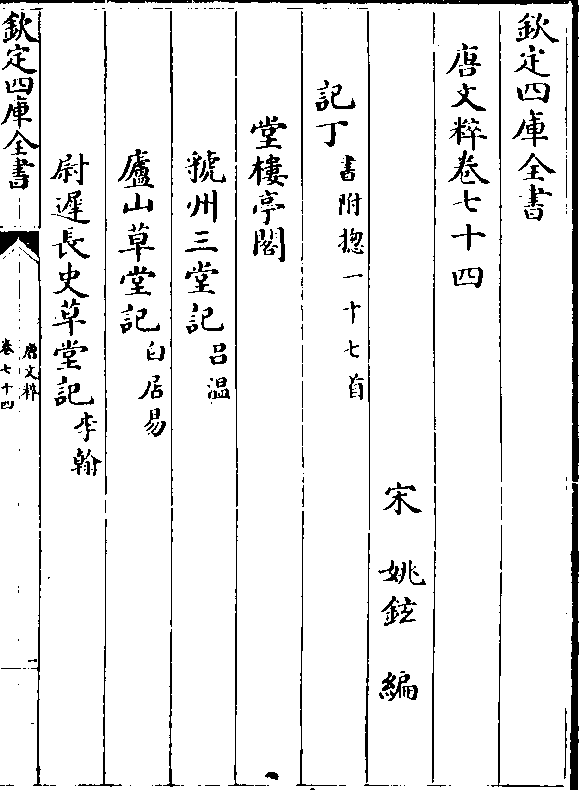 欽定四庫全書
唐文粹卷七十四
宋 姚鉉 編
記丁書附揔一十七首
堂樓亭閣
虢州三堂記呂溫
廬山草堂記白居易
尉遲長史草堂記李翰
欽定四庫全書
唐文粹
卷七十四